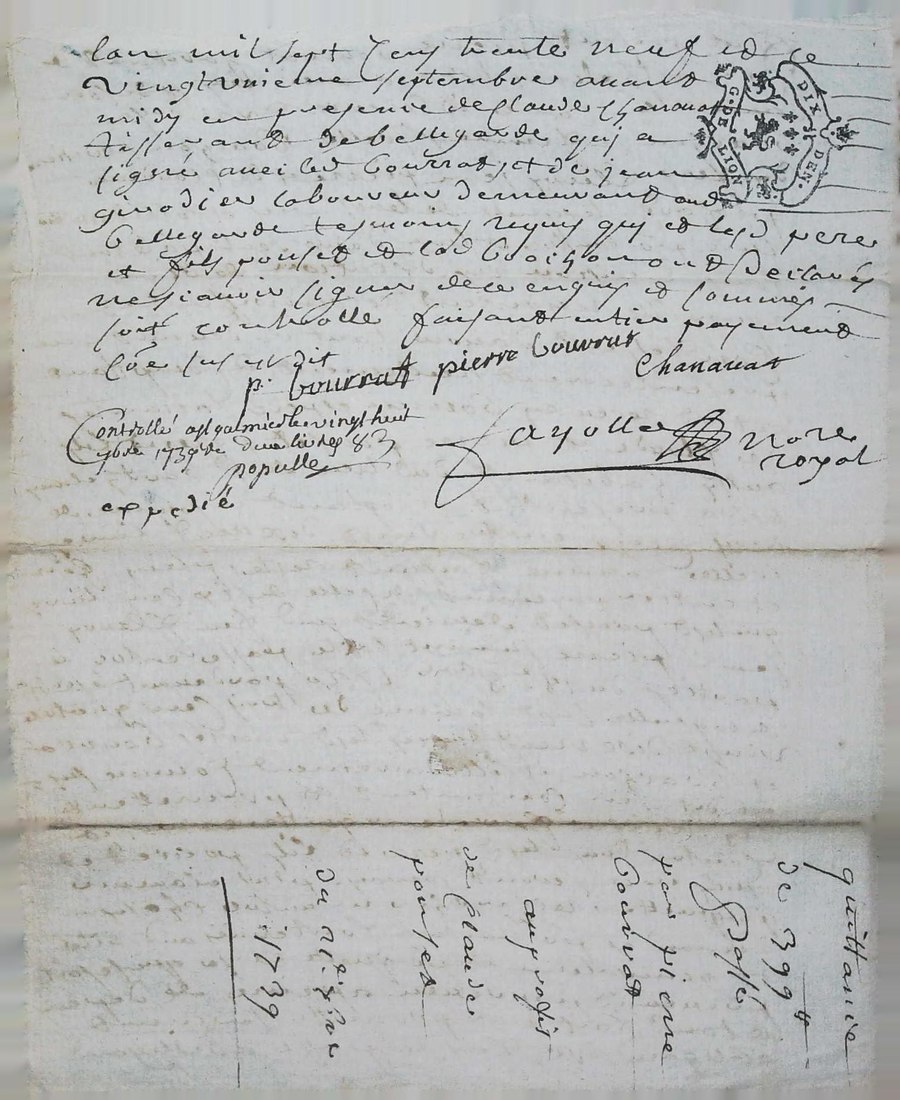 lan mil sept cens trente neuf et ce
vingtunieme septembre avant
midy en presence de Claude Chanavat
tisserand de bellegarde qui a
signé avec led bourrat, et de jean
girodier laboureur demeurant aud
bellegarde tesmoins requis qui et lesd pere
et fils pouset et lad ont declarés
ne scavoir signer de ce enquis et sommés
soit controllé faisant entier payement
come sus est dit
p. bourrat pierre bourrat
Chanauat
G. DE LION DIX DEN.
Controllé a st galmier le vingt huit
7bre 1739
populle
fayolle nore
royal
expedié
quittance
de 399 tt
passé
par pierre
bourrat
au profit
de Claude
pouset
du 21e 7bre
1739